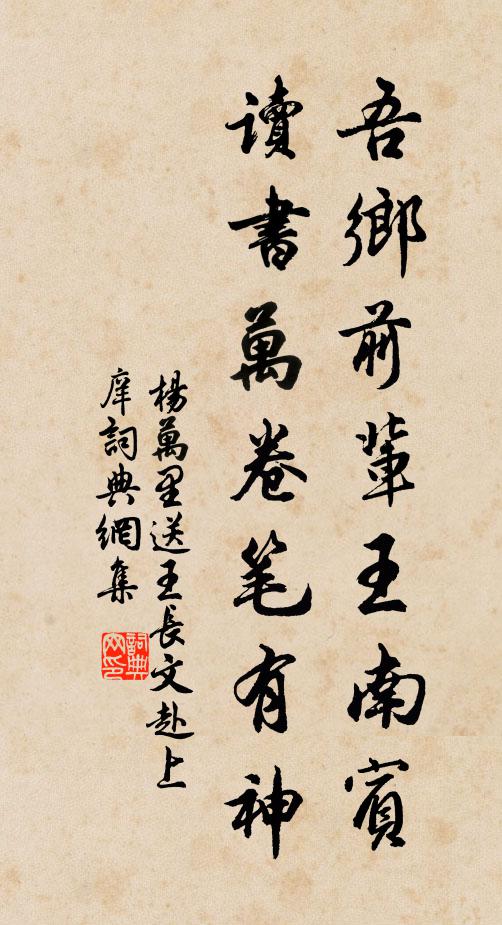 吾鄉前輩王南賓
讀書萬卷笔有神
楊萬里送王長文赴上
庠詞典網集
詞典
网印